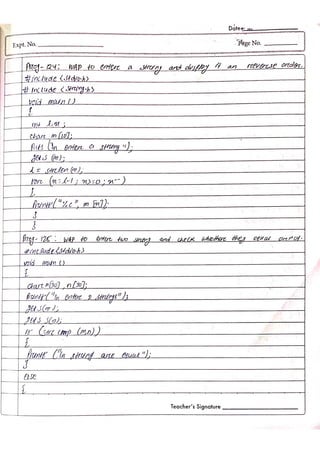 Date:
Expt. No.
Page No.
Prog-124: WAP to enter a string and display it an reverse order.
#include <stdio.h>
#include <string.h>
void main ()
{
int l,n;
char m[20];
Puts ("\n enter a string");
gets (m);
l = strlen (m);
for (n=l-1; n>=0; n--)
{
Printf("%c", m[n]);
}
}
Prog-125: WAP to enter two string and check whether they equal or not.
#include<stdio.h>
void main ()
{
char m[20], n[20];
Printf("\n enter 2 strings");
gets(m);
gets (n);
if (strcmp (m,n))
{
Printf ("\n string are equal");
}
else
{
Teacher's Signature